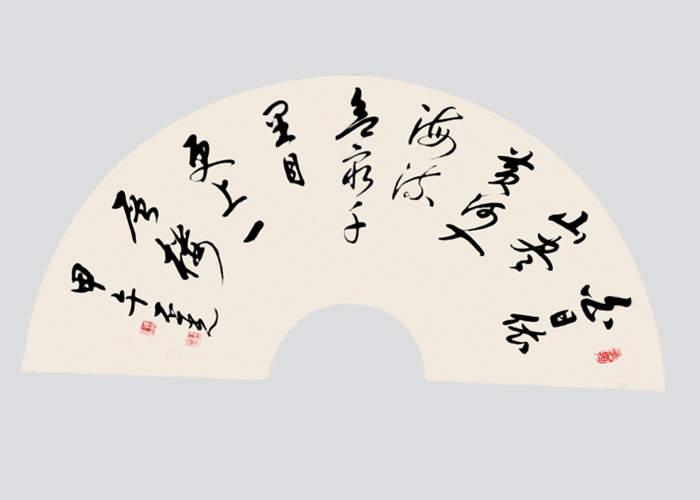 白日依
山尽
黄河入
海流
欲穷千
里目
更上一
层楼
甲午